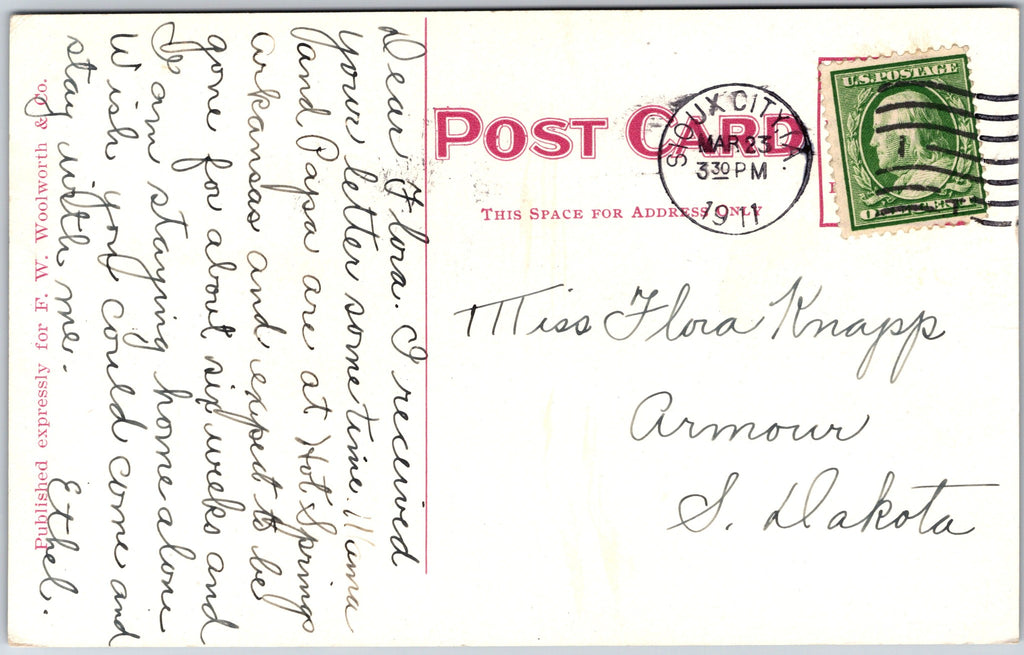 Dear Flora. I received
your letter some time. Mama
and Papa are at Hot Springs
Arkansas and expect to be
gone for about six weeks and
I am staying home alone
Wish you could come and
stay with me.
Ethel.
Published expressly for F. W. Woolworth & Co.
POST CARD
THIS SPACE FOR ADDRESS ONLY
SIOUX CITY, IA.
MAR 23
3 30 PM
1911
U.S. POSTAGE
1
Miss Flora Knapp
Armour
S. Dakota